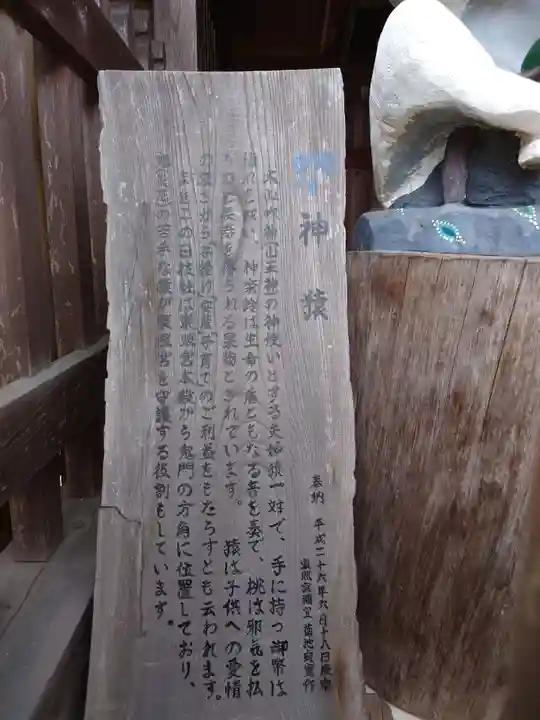 神猿
大山咋 山王神の神使いとする夫婦猿一対で、手に持つ御幣は
い、神楽鈴は生命の 源ともなる音を奏で、桃は邪気を払
長寿を 得られる果物とされています。 猿は子供への愛情
の から「子授け」「安産」「子育て」のご利益をもたらすとも云われます。
またこの日枝社は東照宮本殿から鬼門の方角に位置しており、
の苦手な猿が東照宮を守護する役割もしています。
奉納 平成二十六年六月十八日
東照宮禰宜 菊池 作